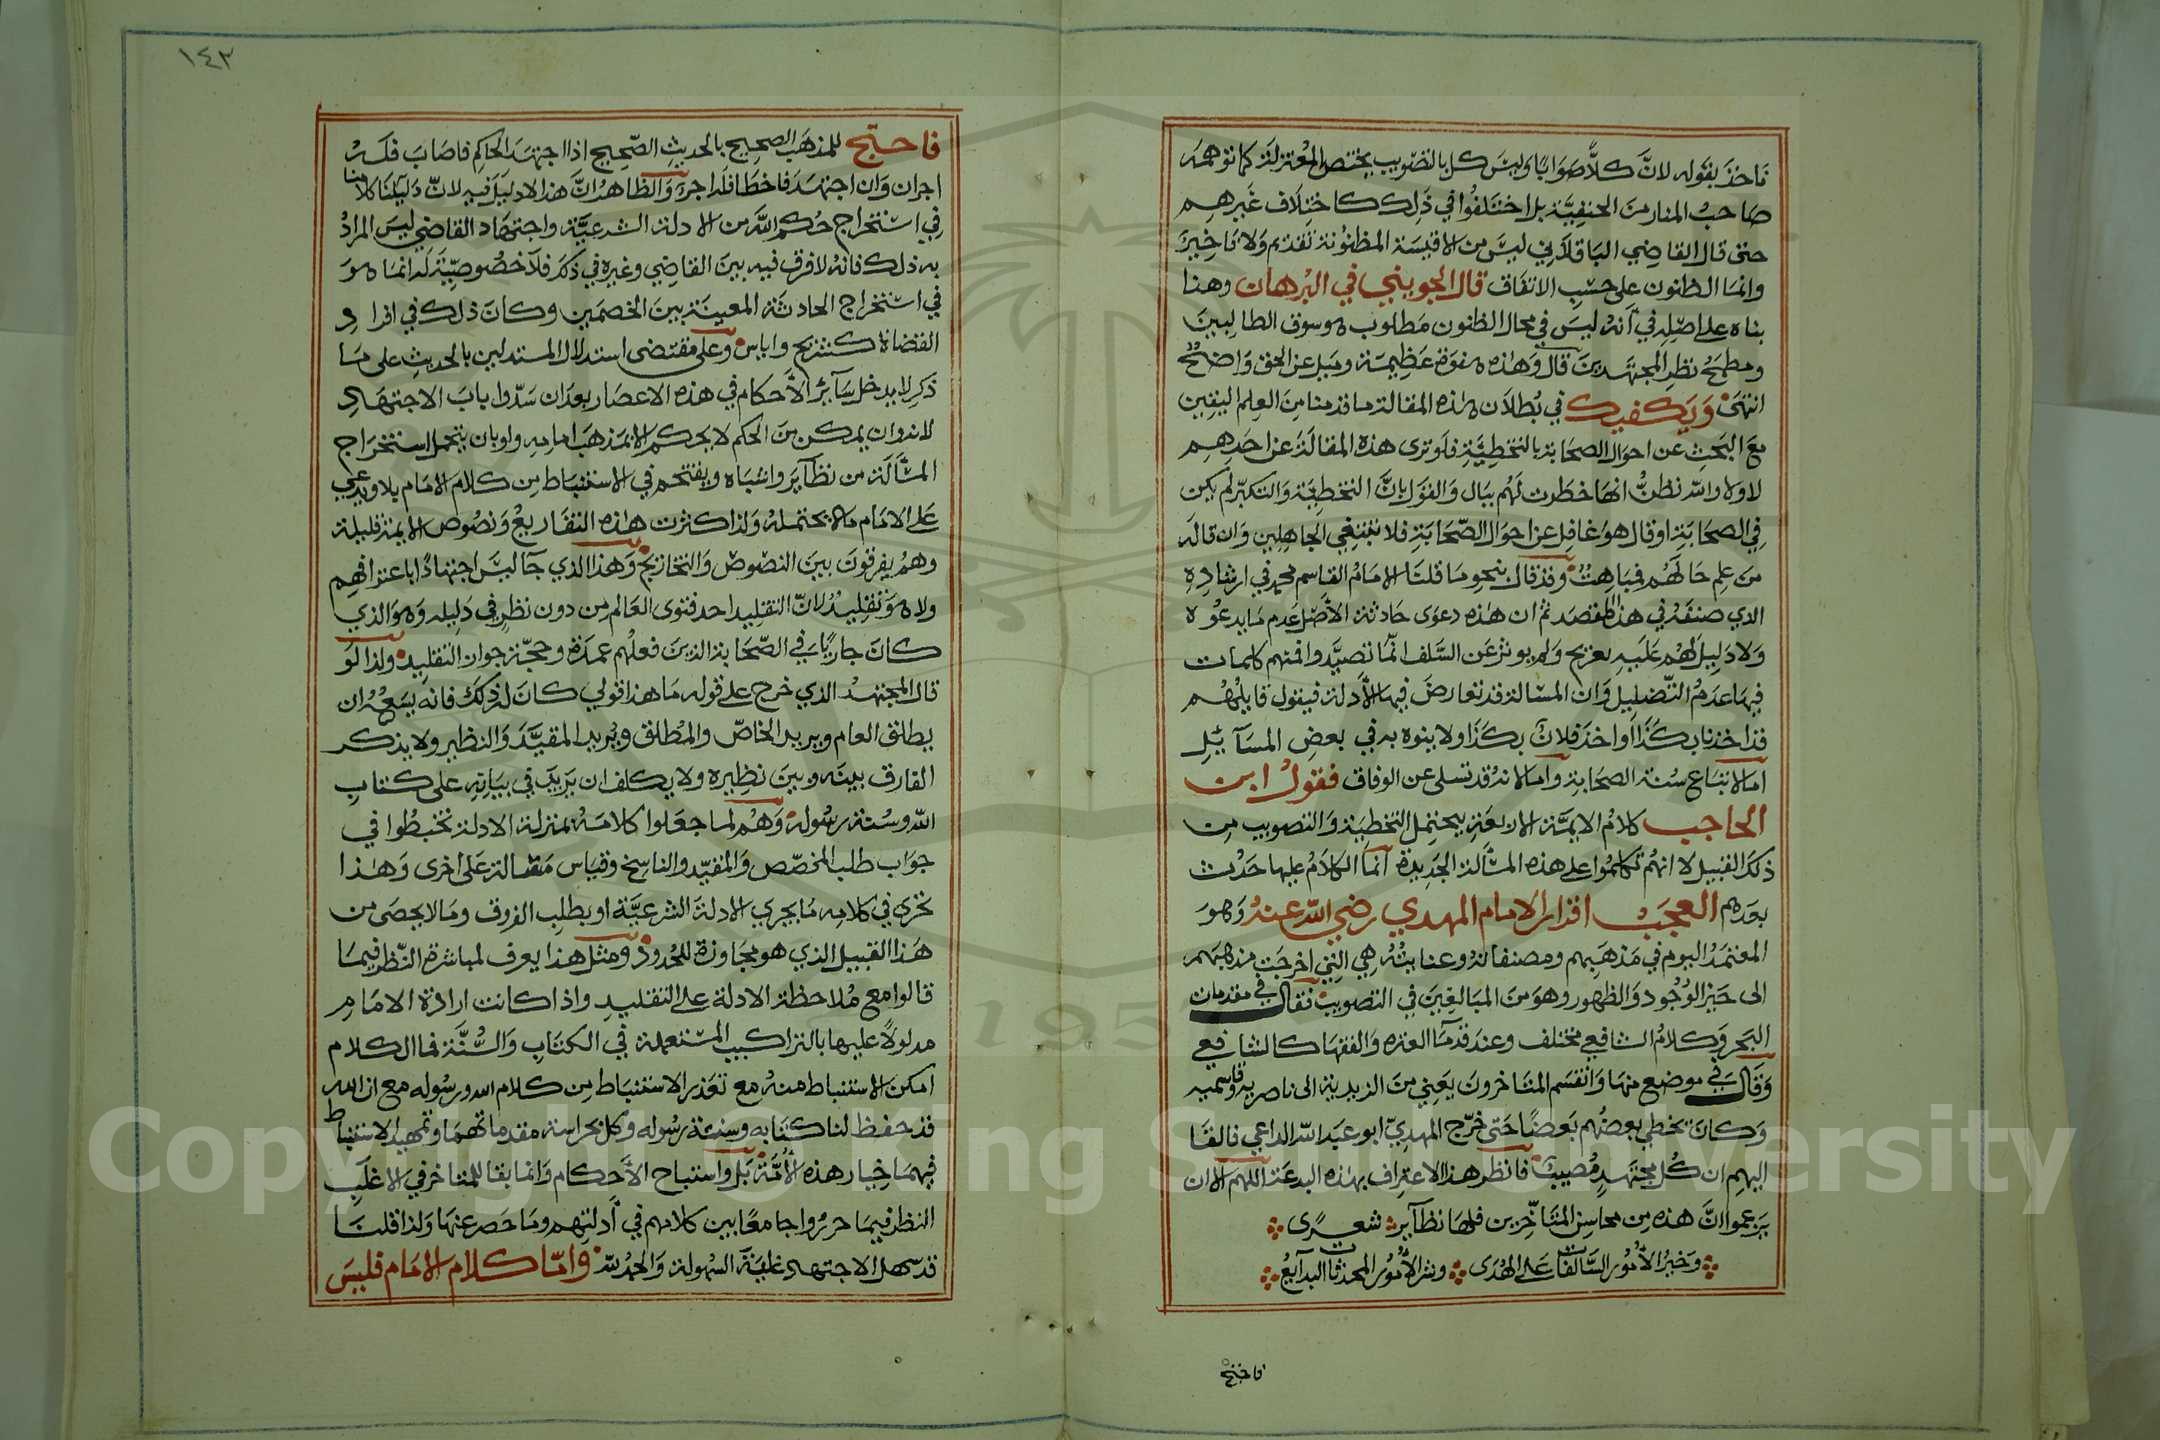 ناخذ بقوله لان كلًّا صوابا وليس كل بالتصويب يختص المعتزلة كما توهمه
صاحب المنار من الحنفية بل اختلفوا في ذلك كاختلاف غيرهم
حتى قال القاضي الباقلاني ليس من الاقيسة المظنونة تقديم ولا تاخير
وانما الظنون على حسب الاتفاق قال الجويني في البرهان وهنا
بناه على اصله في انه ليس في محال الظنون مطلوب هو سوق الطالبين
ومطمح نظر المجتهدين قال وهذه هفوة عظيمة وميل عن الحق واضح
انتهى ويكفيك في بطلان هذه المقالة ما قدمنا من العلم اليقين
مع البحث عن احوال الصحابة بالتخطية فلو ترى هذه المقالة عن احدهم
لا ولا والله نظن انها خطرت لهم ببال والقول بان التخطية والتكبر لم يكن
في الصحابة او قال هو غافل عن احوال الصحابة فلا نبتغي الجاهلين وان قاله
من علم حالهم فيباهت وقد قال بنحو ما قلنا الامام القاسم محمد في ارشاده
الذي صنفه في هذا المقصد ثم ان هذه دعوى حادثة الاصل عدم ما يدعوه
ولا دليل لهم عليه يعزيح ولم يوثر عن السلف انما تصيدوا فمنهم كلمات
فيها عدم التضليل وان المسالة قد تعارض فيها الادلة فيقول قايلهم
قد اخذنا بكذا او اخذ فلان بكذا ولا ينوه به في بعض المسآئل
اما لاتباع سنة الصحابة واما لانه قد تسلى عن الوفاق فقول ابن
الحاجب كلام الايمة الاربعة يحتمل التخطية والتصويب من
ذلك القبيل لا انهم تكلموا على هذه المسألة الجديدة انما الكلام عليها حدث
بعدهم العجب اقرار الامام المهدي رضي الله عنه وهو
المعتمد اليوم في مذهبهم ومصنفاته وعنايته هي التي اخرجت مذهبهم
الى حيز الوجود والظهور وهو من المبالغين في التصويب فقال في مقدمات
البحر وكلام الشافعي مختلف وعند قدمآ العتره والفقها كالشافعي
وقال في موضع منها وانقسم المتاخرون يعني من الزيدية الى ناصرية وقاسمية
وكان يخطي بعضهم بعضا حتى خرج المهدي ابو عبد الله الداعي فالقا
اليهم ان كل مجتهد مصيب فانظر هذا الاعتراف بهذه البدعة اللهم الا ان
يزعموا ان هذه من محاسن المتاخرين فلها نظآير شعرى
وخير الامور السالفات على الهدى وشر الامور المحدثات البدايع
فاحتج
١٤٣
فاحتج للمذهب الصحيح بالحديث الصحيح اذا اجتهد الحاكم فاصاب فله
اجران وان اجتهد فاخطا فله اجر والظاهر ان هذا لا دليل فيه لان دليلنا كلامنا
في استخراج حكم الله من الادلة الشرعية واجتهاد القاضي ليس المراد
به ذلك فانه لا فرق فيه بين القاضي وغيره في ذلك فلا خصوصية له انما هو
في استخراج الحادثة المعينة بين الخصمين وكان ذلك في افراد
القضاة كشريح واياس وعلى مقتضى استدلال المستدلين بالحديث على ما
ذكر لا يدخل سآئر الاحكام في هذه الاعصار بعد ان سدوا باب الاجتهاد
لانه وان يمكن من الحكم لا يحكم الا بمذهب امامه ولو بان يتحمل استخراج
المسألة من نظآير واشباه ويفتحم في الاستنباط من كلام الامام بلا ويدعي
على الامام ما لا يحتمله ولذا كثرت هذه التفاريع ونصوص الايمة قليلة
وهم يفرقون بين النصوص والتخاريج وهذا الذي جآ ليس اجتهادًا باعترافهم
ولا هو تقليد لان التقليد احد فتوى العالم من دون نظر في دليله وهو الذي
كان جاريا في الصحابة الذين فعلهم عمدة وحجة جواز التقليد ولذا لو
قال المجتهد الذي خرج على قوله ما هذا قولي كان له ذلك فانه يسعه ان
يطلق العام ويريد الخاص والمطلق ويريد المقيد والنظير ولا يذكر
الفارق بينه وبين نظيره ولا يكلف ان يربي في بيانه على كتاب
الله وسنة رسوله وهم لما جعلوا كلامه بمنزلة الادلة تخبطوا في
جواب طلب المخصص والمقيد والناسخ وقياس مقالة على اخرى وهذا
تخري في كلامه ما يجري الادلة الشرعية او يطلب الفروق وما لا يحصى من
هذا القبيل الذي هو مجاوزة للحدود ومثل هذا يعرف لمباشرة النظر فيما
قالوا مع ملاحظة الادلة على التقليد واذا كانت ارادة الامام
مدلولًا عليها بالتراكيب المستعملة في الكتاب والسنة فما الكلام
امكن الاستنباط منه مع تعذر الاستنباط من كلام الله ورسوله مع ان الله
قد حفظ لنا كتابه وسنة رسوله وكل بحراسة مقدماتهما وتمهيد الاستنباط
فيهما خيار هذه الامة بل واستباح الاحكام وانما بقا للمتاخر في الاغلب
النظر فيما حرروا جامعًا بين كلامهم في أدلتهم وما حصر عنها ولذا قلنا
قد سهل الاجتهاد غاية السهولة والحمد لله واما كلام الامام فليس
Copyright © King Saud University
195